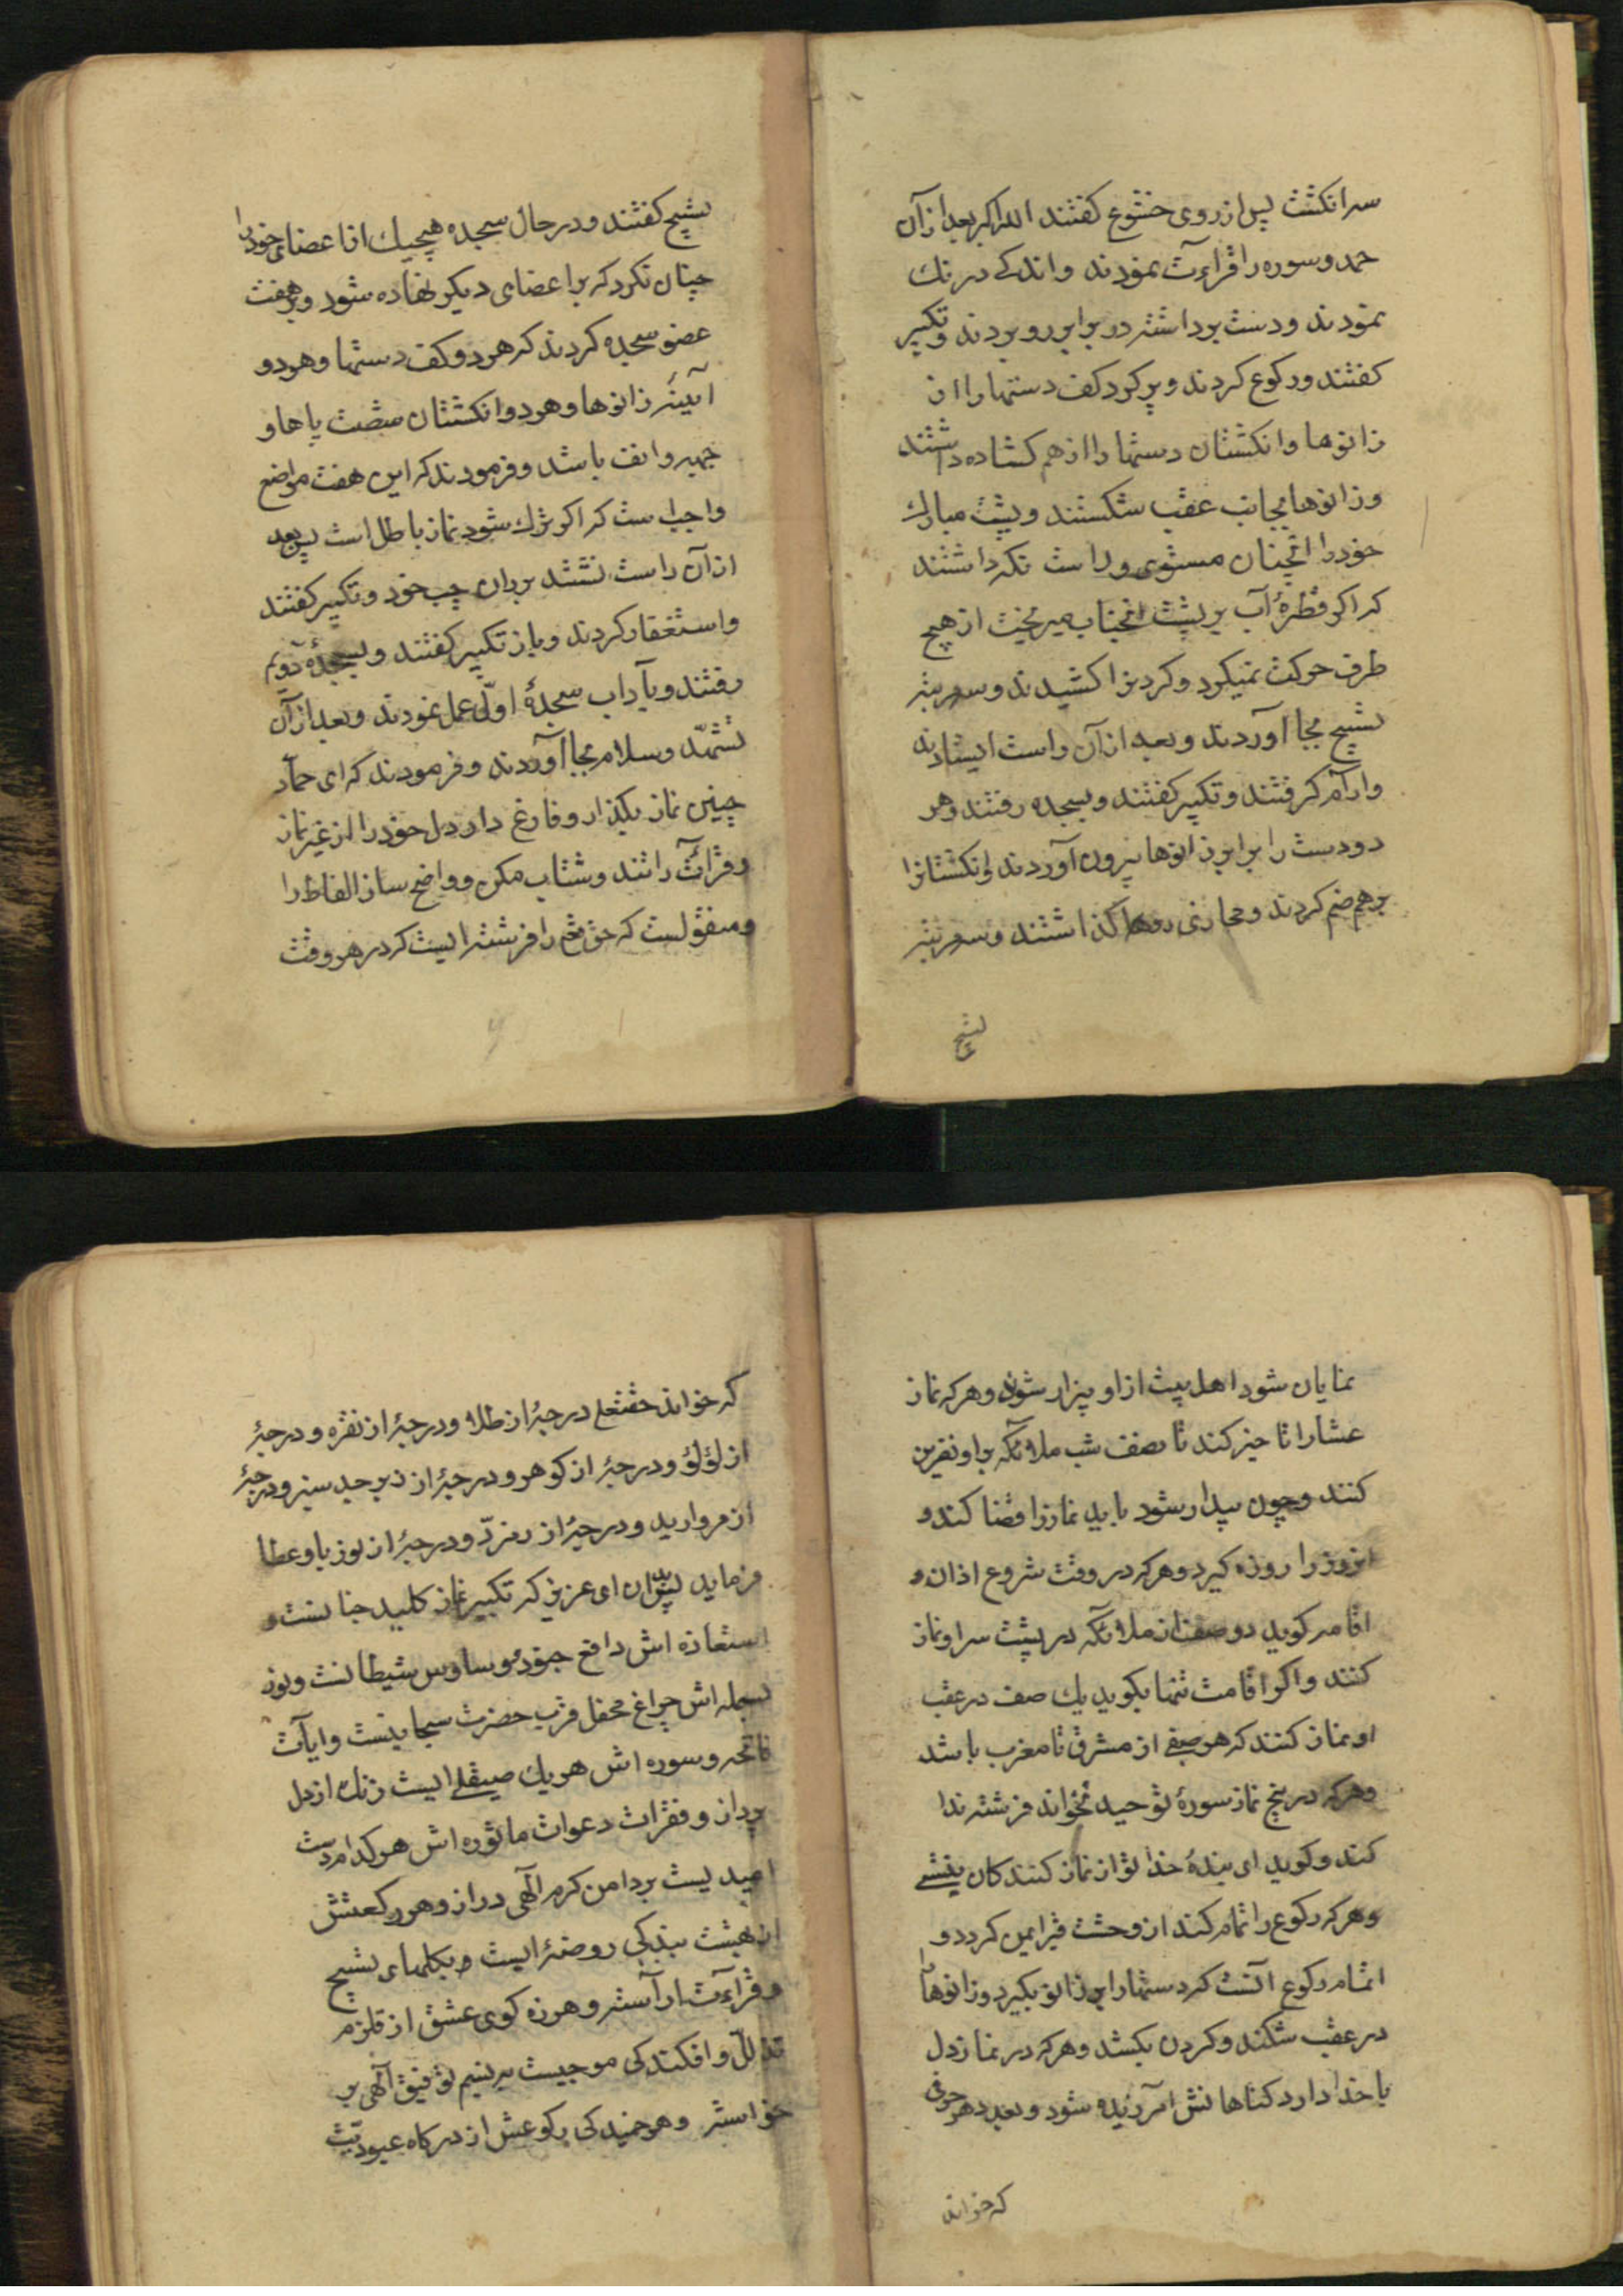 سرانکشت پس از روی خشوع کفتند الله اکبر بعد از آن
حمد و سوره را قراءت نمودند و اندکے درنک
نمودند و دست برداشته در برابر رو بردند و تکبیر
کفتند و رکوع کردند و پر کرد کف دستها را از
زانوها و انکشتان دستها را از هم کشاده داشتند
و زانوها بجانب عقب شکستند و پشت مبارک
خود را انچنان مستوی و راست نکه داشتند
که اکر قطرهٔ آب بر پشت انجناب میریخت از هیچ
طرف حرکت نمیکرد و کردنرا کشیدند و سه مرتبه
تسبیح بجا آوردند و بعد از آن راست ایستادند
و ارام کرفتند و تکبیر کفتند و بسجده رفتند و هر
دو دست را برابر زانوها بیرون آوردند و انکشتانرا
برهم ضم کردند و محاذی روها کذاشتند و سه مرتبه
تسبیح
تسبیح کفتند و در حال سجده هیچیک از اعضای خود را
چنان نکرد که بر اعضای دیکر نهاده شود و بر هفت
عضو سجده کردند که هر دو کف دستها و هر دو
آیینه زانوها و هر دو انکشتان شصت پاها و
جبهه و انف باشد و فرمودند که این هفت مواضع
واجب ست که اکر ترک شود نماز باطل است پس بعد
از آن راست نشتند بران چب خود و تکبیر کفتند
و استغفار کردند و باز تکبیر کفتند و بسجدهٔ دویم
رفتند و بآداب سجدهٔ اول عمل نمودند و بعد از آن
تشهّد و سلام بجا آوردند و فرمودند که ای حمّاد
چنین نماز بکذار و فارغ دار دل خود را از غیر نماز
و قرائت را تند و شتاب مکن و واضح ساز الفاظ را
و منقولست که حق تعم را فرشته ایست که در هر وقت
نمایان شود اهل بیت از او بیزار شوند و هر که نماز
عشا را تاخیر کند تا نصف شب ملائکه بر او نفرین
کنند و چون بیدار شود باید نماز را قضا کند و
انروز را روزه کیرد و هر که در وقت شروع اذان و
اقامه کوید دو صف از ملائکه در پشت سر او نماز
کنند و اکر اقامت تنها بکوید یک صف در عقب
او نماز کنند که هر صفے از مشرق تا مغرب باشد
و هر که در پنج نماز سورهٔ توحید نخواند فرشته ندا
کند و کوید ای بندهٔ خدا تو از نماز کنندکان نیستے
و هر که رکوع را تمام کند از وحشت قبر ایمن کردد و
اتمام رکوع آنست که دستها را بر زانو بکیرد و زانوها را
در عقب شکند و کردن بکشد و هر که در نماز دل
با خدا دارد کناهانش آمرزیده شود و بعدد هر حرفی
که خواند
که خواند حقتعلی درجهٔ از طلا و درجهٔ از نقره و درجهٔ
از لؤلؤ و درجهٔ از کوهر و درجهٔ از زبرجد سبز و درجهٔ
از مروارید و درجهٔ از زمرّد و درجهٔ از نور باو عطا
فرماید پس بدان ای عزیز که تکبیر نماز کلید جنانست و
استعاذه اش دافع جنود و وساوس شیطانست و نور
بسمله اش چراغ محفل قرب حضرت سبحانیست و ایآت
فاتحه و سوره اش هر یک صیقلے ایست زنک از دل
پرداز و فقرات دعوات ماثوره اش هر کدام دست
امید یست بر دامن کرم الهی دراز و هر رکعتش
از بهشت بندکی روضهٔ ایست و بکلهای تسبیح
و قراءت اراسته و هرزه کوی عشق از قلزم
تذلّل و افکندکی موجیست بر نسیم توفیق آلهی بر
خواسته و هر خمیدکی رکوعش از درکاه عبودیّت